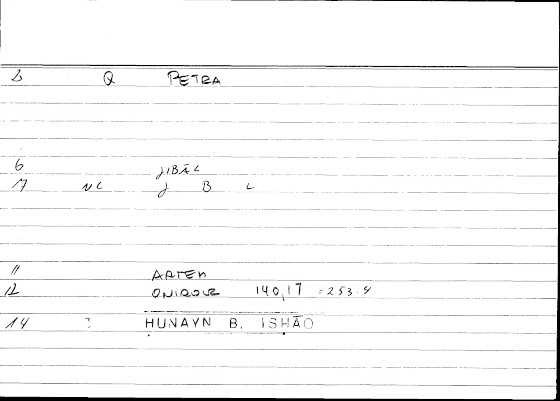 Q PETRA
6 JIBĀL
NC J B L
11 ARTEM
12 ONIROCR 140,17 = 253.4
14 : ḤUNAYN B. ISḤĀQ